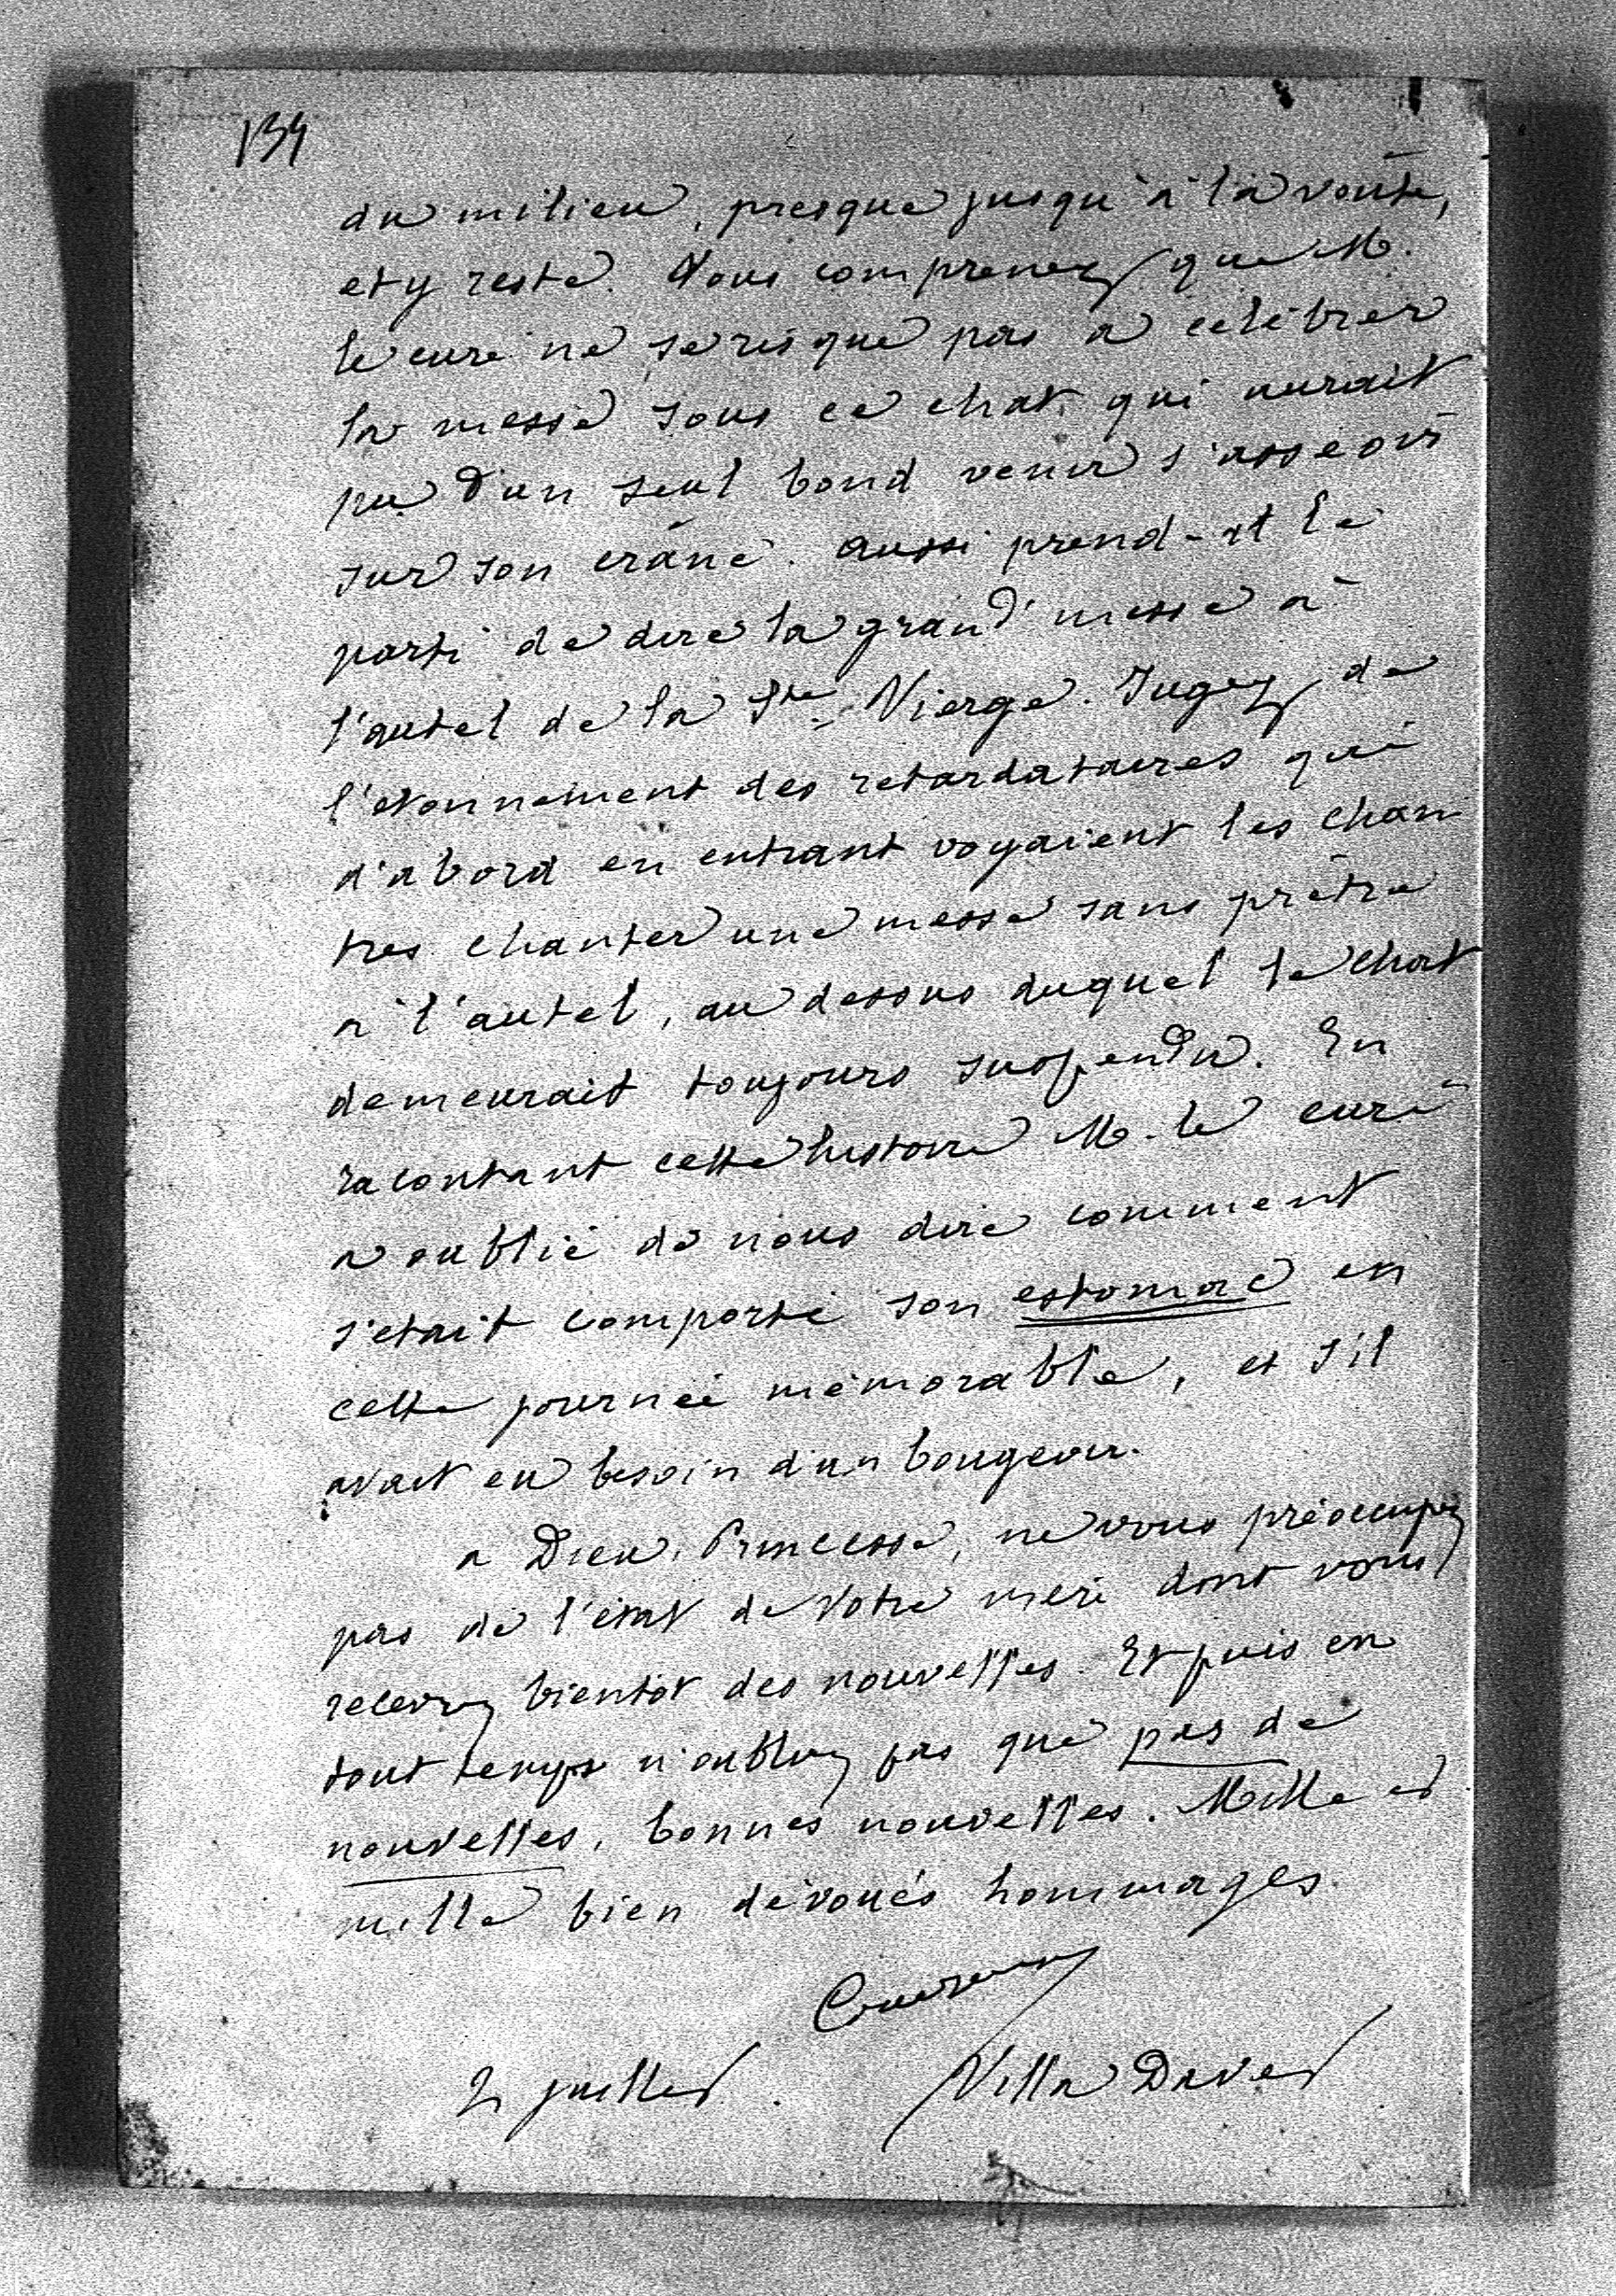 134
du milieu, presque jusqu'à la voûte,
et y reste. Vous comprenez que M.
le curé ne se risque pas a celebrer
la messe sous ce chat qui aurait
pu d'un seul bond venir s'asseoir
sur son crâne. Aussi prend-il le
parti de dire la grand' messe à
l'autel de la Ste Vierge. Jugez de
l'etonnement des retardataires qui
d'abord en entrant voyaient les chan
tres chanter une messe sans prêtre
à l'autel, au dessus duquel le chat
demeurait toujours suspendu. En
racontant cette histoire M. le curé
a oublié de nous dire comment
s'etait comporté son estomac en
cette journée mémorable, et s'il
avait eu besoin d'un bougeoir.
a Dieu, Princesse, ne vous préoccupez
pas de l'état de votre mere dont vous
recevrez bientôt des nouvelles. Et puis en
tout temps n'oubliez pas que pas de
nouvelles, bonnes nouvelles. Mille et
mille bien dévoués hommages.
2 juillet. Villa